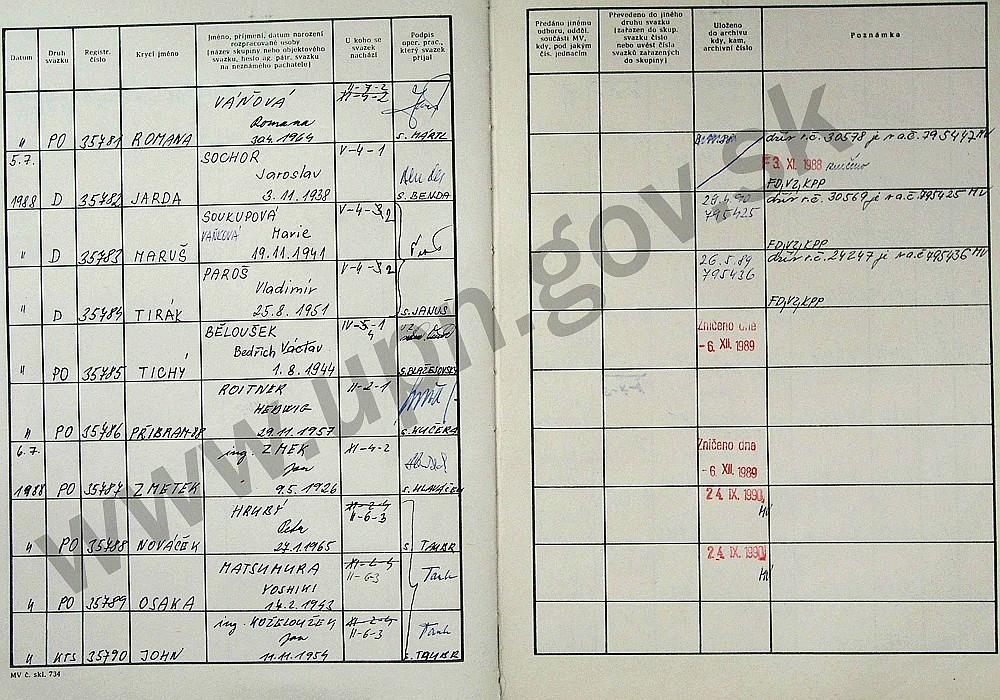 Datum
Druh svazku
Registr. číslo
Krycí jméno
Jméno, příjmení, datum narození
rozpracované osoby
(název skupiny nebo objektového
svazku, heslo ag. pátr. svazku
na neznámého pachatele)
U koho se
svazek
nachází
Podpis
oper. prac.,
který svazek
přijal
Předáno jinému
odboru, odděl.
součásti MV,
kdy, pod jakým
čís. jednacím
Převedeno do jiného
druhu svazku
(zařazen do skup.
svazku číslo
nebo uvést čísla
svazků zařazených
do skupiny)
Uloženo
do archivu
kdy, kam,
archivní číslo
Poznámka
VÁŇOVÁ
Romana
" PO 35781 ROMANA 30.4.1964 II-7-2 XI-4-2 s. MARTL
5.7. SOCHOR V-4-1
Jaroslav
1988 D 35782 JARDA 3.11.1938 s. BENDA
dřív r.č. 30578 je v a.č. 795447 MV
-3. XI. 1988
FD,VZ,KPP
SOUKUPOVÁ V-4-3 2
VAŇKOVÁ Marie
" D 35783 MARUŠ 19.11.1941
29.4.90 dřív r.č. 30569 je v a.č. 795425 MV
795425
FD,VZ,KPP
PAROŠ V-4-3 2
Vladimír
" D 35784 TIRÁK 25.8.1951 s. JANUŠ
26.5.89 dřív r.č. 24247 je v a.č. 795436 MV
795436
FD,VZ,KPP
BĚLOUŠEK IV-5-1
Bedřich Václav 4
" PO 35785 TICHÝ 1.8.1944 s. BLAŽEJOVSKÝ
Zničeno dne
-6. XII. 1989
ROITNER II-2-1
HEDWIG
" PO 35786 PŘÍBRAM-88 29.11.1957 s. KUČERA
6.7. ing. ZMEK XI-4-2
Jan
1988 PO 35787 ZMETEK 9.5.1926 s. HLAVÁČEK
Zničeno dne
-6. XII. 1989
HRUBÝ II-2-4
Petr II-6-3
" PO 35788 NOVÁČEK 27.1.1965 s. TAUBR
24. IX. 1990
MV
MATSUMURA II-2-4
YOSHIKI II-6-3
" PO 35789 OSAKA 14.2.1943
24. IX. 1990
MV
ing. KOŽELOUŽEK II-2-4
Jan II-6-3
" KTS 35790 JOHN 11.11.1954 s. TAUBR
MV č. skl. 734
www.upn.gov.sk